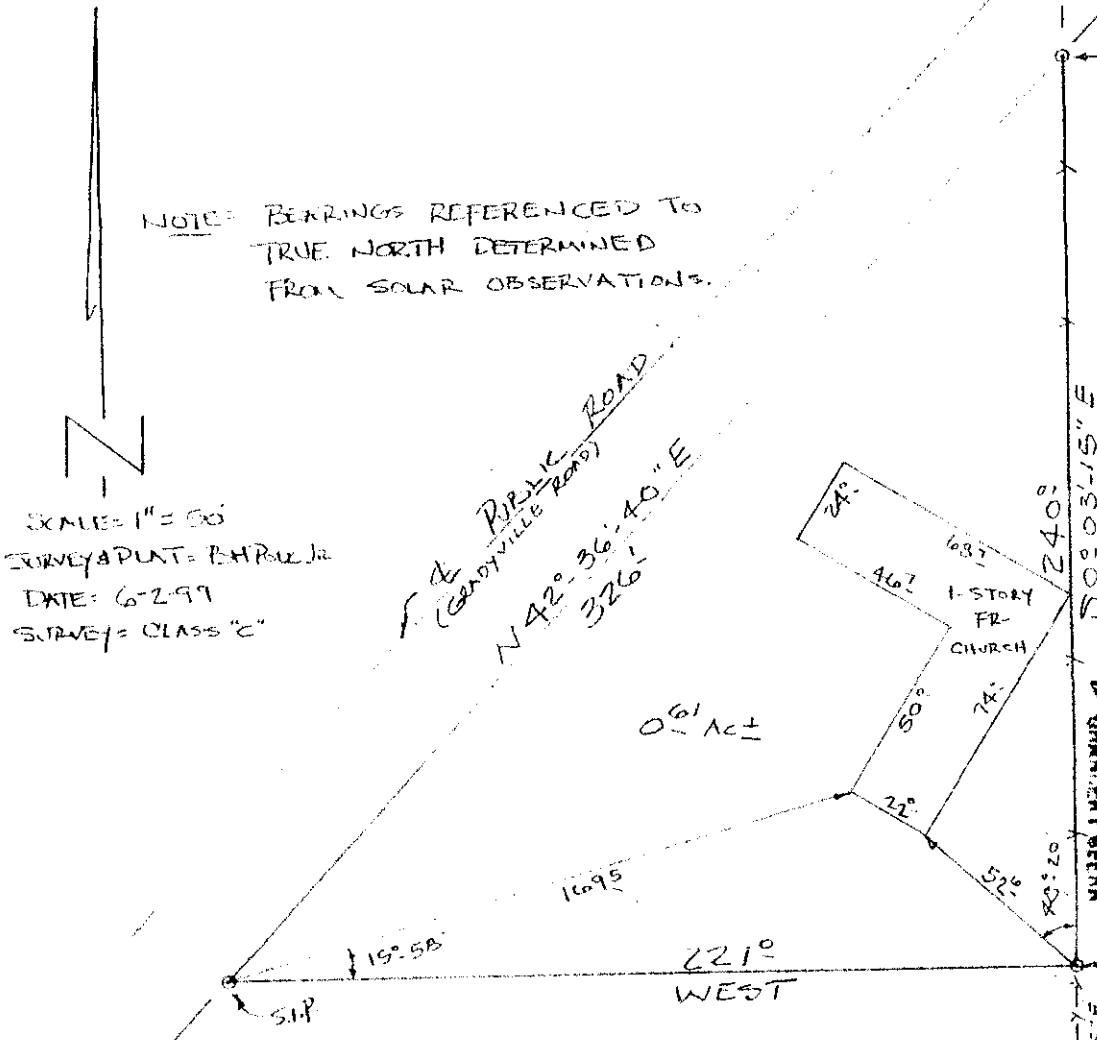 NOTE= BEARINGS REFERENCED TO
TRUE NORTH DETERMINED
FROM SOLAR OBSERVATIONS.
N
SCALE= 1" = 50'
SURVEY & PLAT=
DATE: 6-2-99
SURVEY= CLASS "C"
℄ PUBLIC ROAD
(GRADYVILLE ROAD)
N 42°-36'-40" E
326'
24°
68
46
1-STORY
FR-
CHURCH
50°
74
22°
0 61 AC ±
240
S 0°-03'-15" E
169 5
15°-58'
52 6
20
221°
WEST
S.I.P.